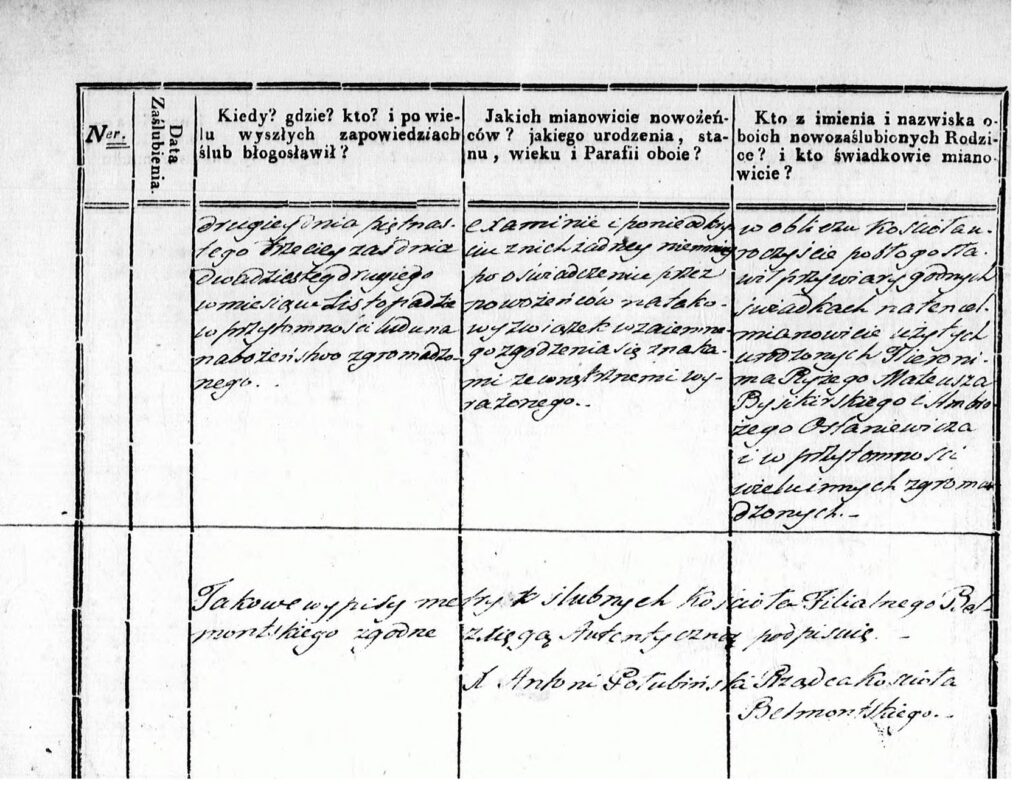 Ner.
Data
Zaślubienia.
Kiedy? gdzie? kto? i po wie-
lu wyszłych zapowiedziach
ślub błogosławił?
Jakich mianowicie nowożeń-
ców? jakiego urodzenia, sta-
nu, wieku i Parafii oboie?
Kto z imienia i nazwiska o-
boich nowozaślubionych Rodzi-
ce? i kto świadkowie miano-
wicie?
drugiey dnia piętnas-
tego trzeciey zaś dnia
dwudziestego drugiego
w miesiącu Listopadzie
w przytomności ludu na
nabożeństwo zgromadzo-
nego.
examinie i poniewykry-
ciu z nich żadney
po oświadczeniu przez
nowożeńców na tako-
wy związek wzaiemne-
go zgodzenia się znaka-
mi zewnętrznemi wy-
rażonego.
w obliczu Kościoła u-
roczyście pobłogosła-
wił przy wiary godnych
świadkach na ten cel
mianowicie użytych
urodzonych Hieroni-
ma Ryżego Mateusza
Bysikirskiego i Ambro-
żego Ostaniewicza
i w przytomności
wielu innych zgroma-
dzonych.-
Takowe wypisy metryk ślubnych Kościoła Filialnego Bel-
montskiego zgodne z xięgą Autentyczną podpisuię. -
X Antoni Połubiński Rządca Kościoła
Belmontskiego.-